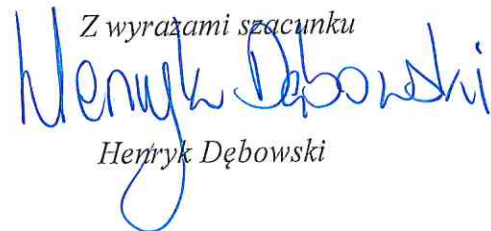 Z wyrazami szacunku
Henryk Dębowski
Henryk Dębowski